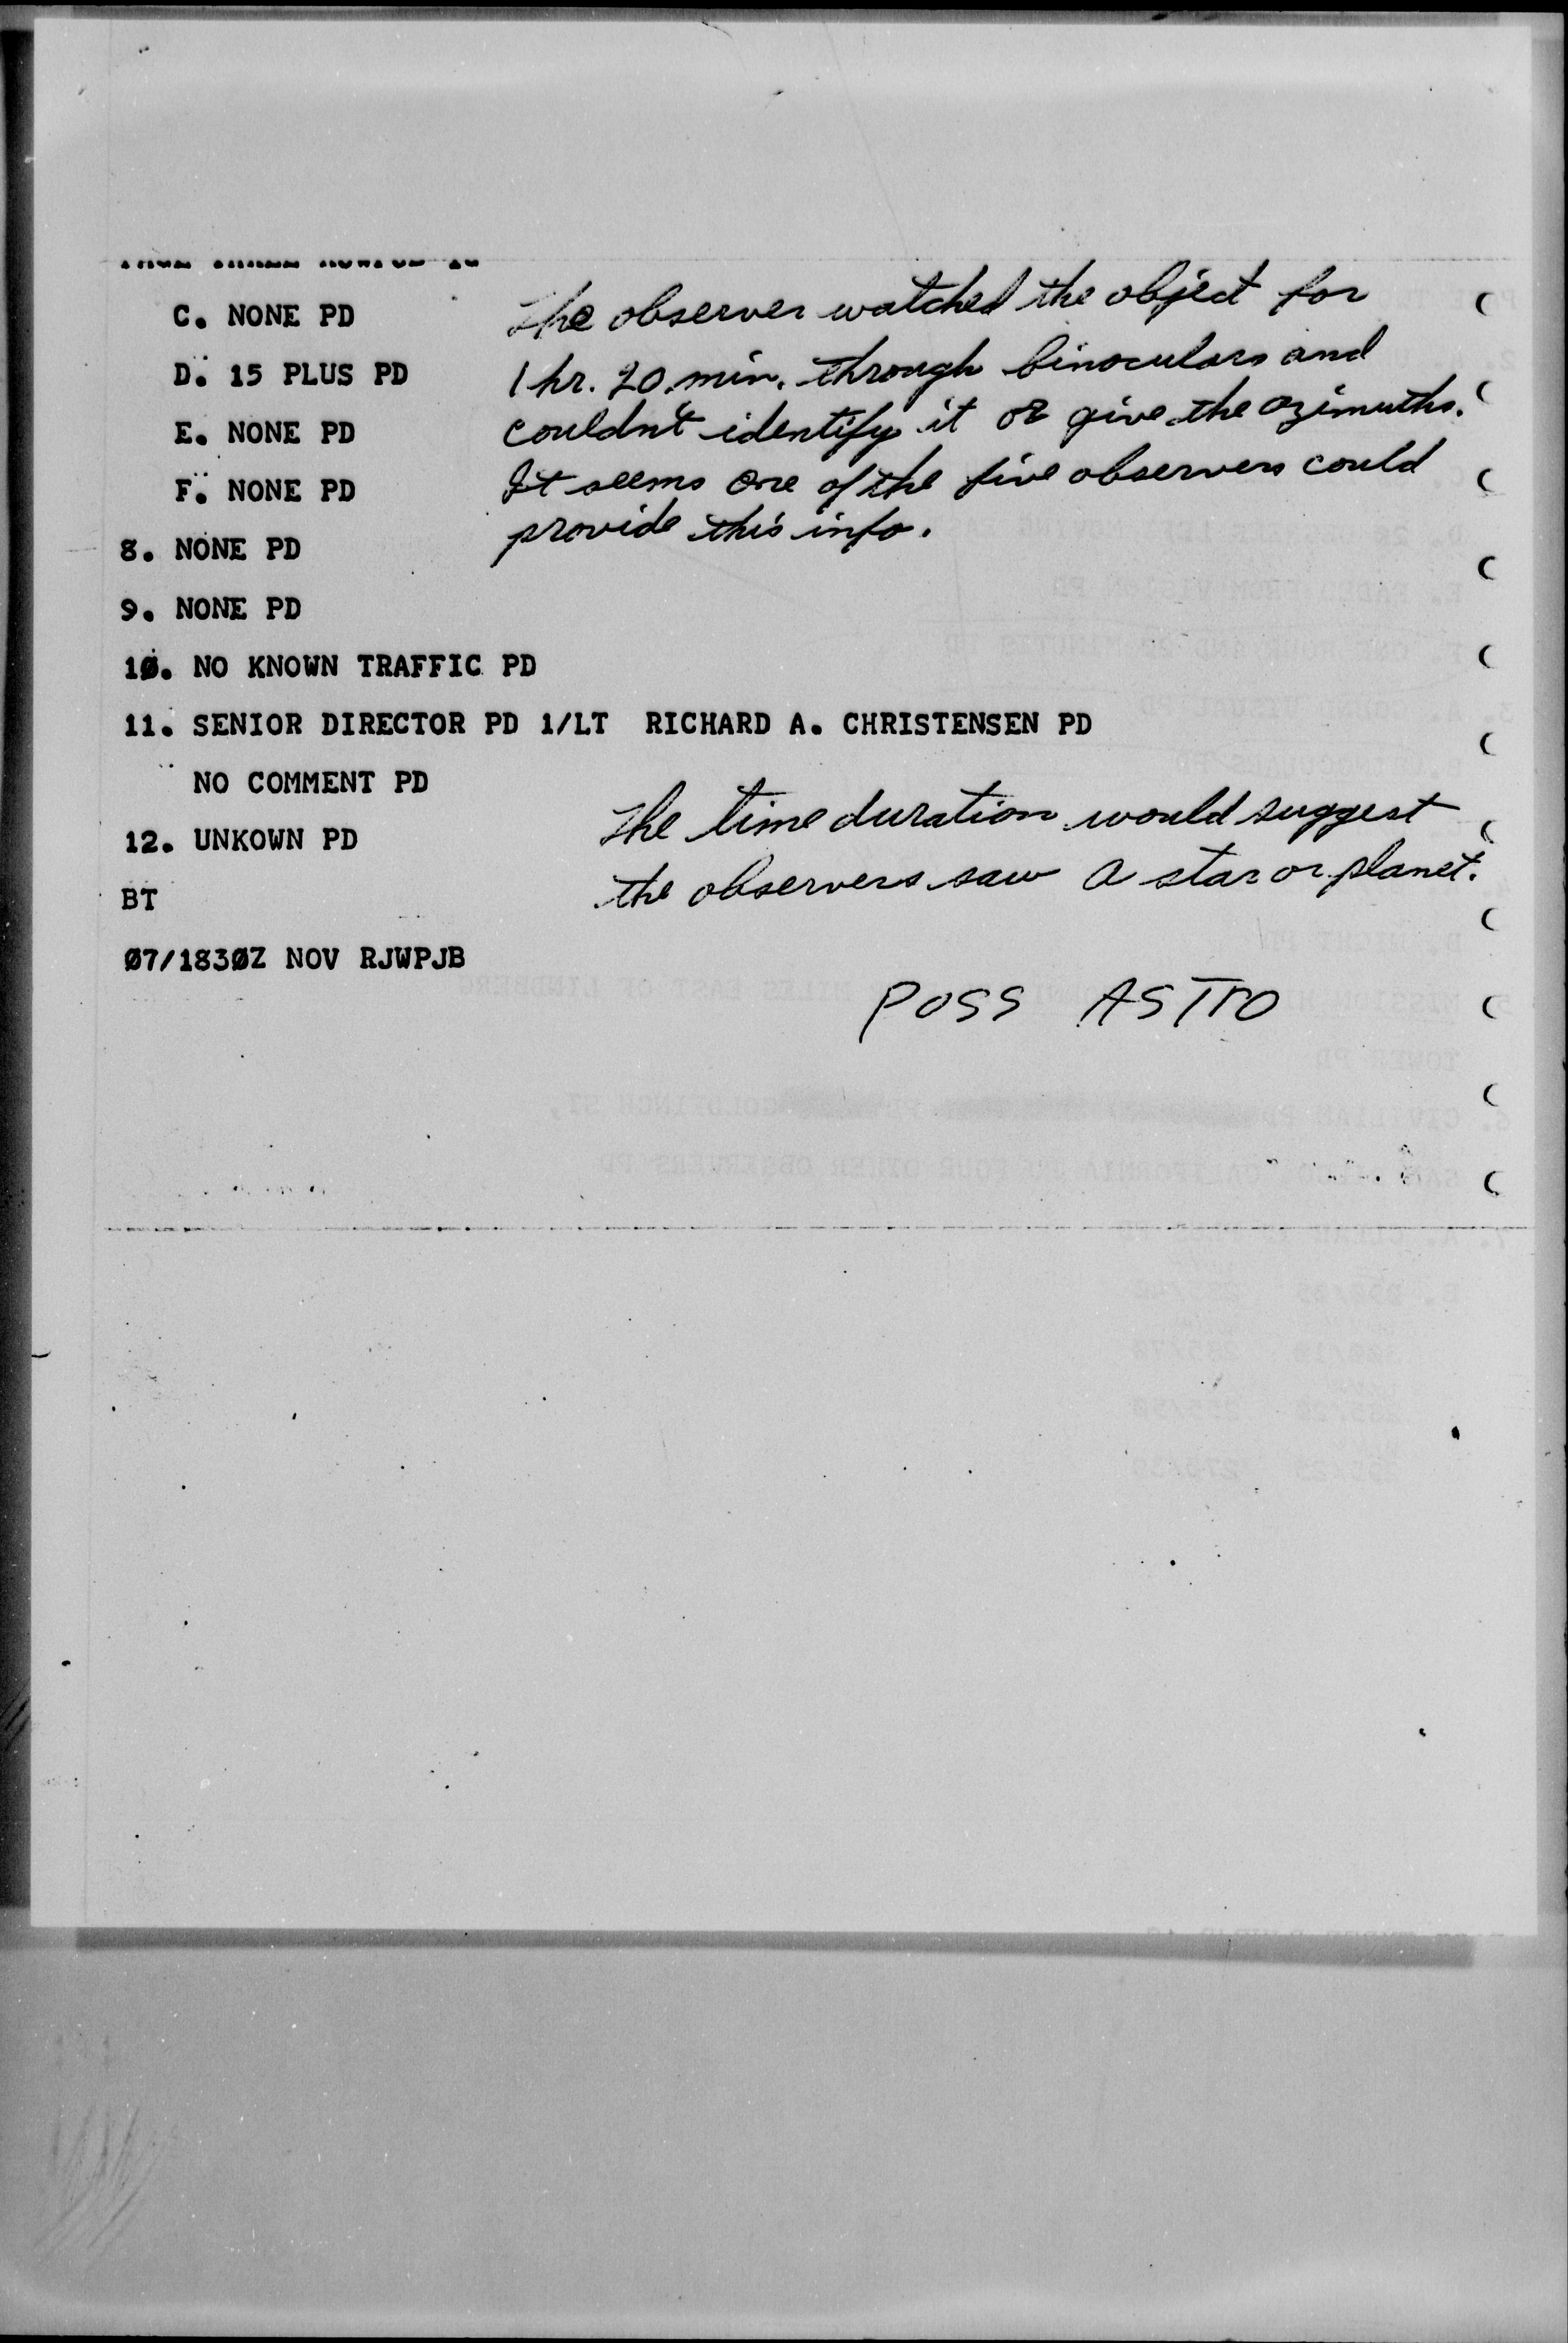 C. NONE PD
The observer watched the object for
D. 15 PLUS PD
1 hr. 20 min. through binoculars and
E. NONE PD
couldn't identify it or give the azimuths.
F. NONE PD
It seems one of the five observers could
provide this info.
8. NONE PD
9. NONE PD
10. NO KNOWN TRAFFIC PD
11. SENIOR DIRECTOR PD 1/LT RICHARD A. CHRISTENSEN PD
NO COMMENT PD
The time duration would suggest
12. UNKOWN PD
the observers saw a star or planet.
BT
07/1830Z NOV RJWPJB
POSS ASTRO